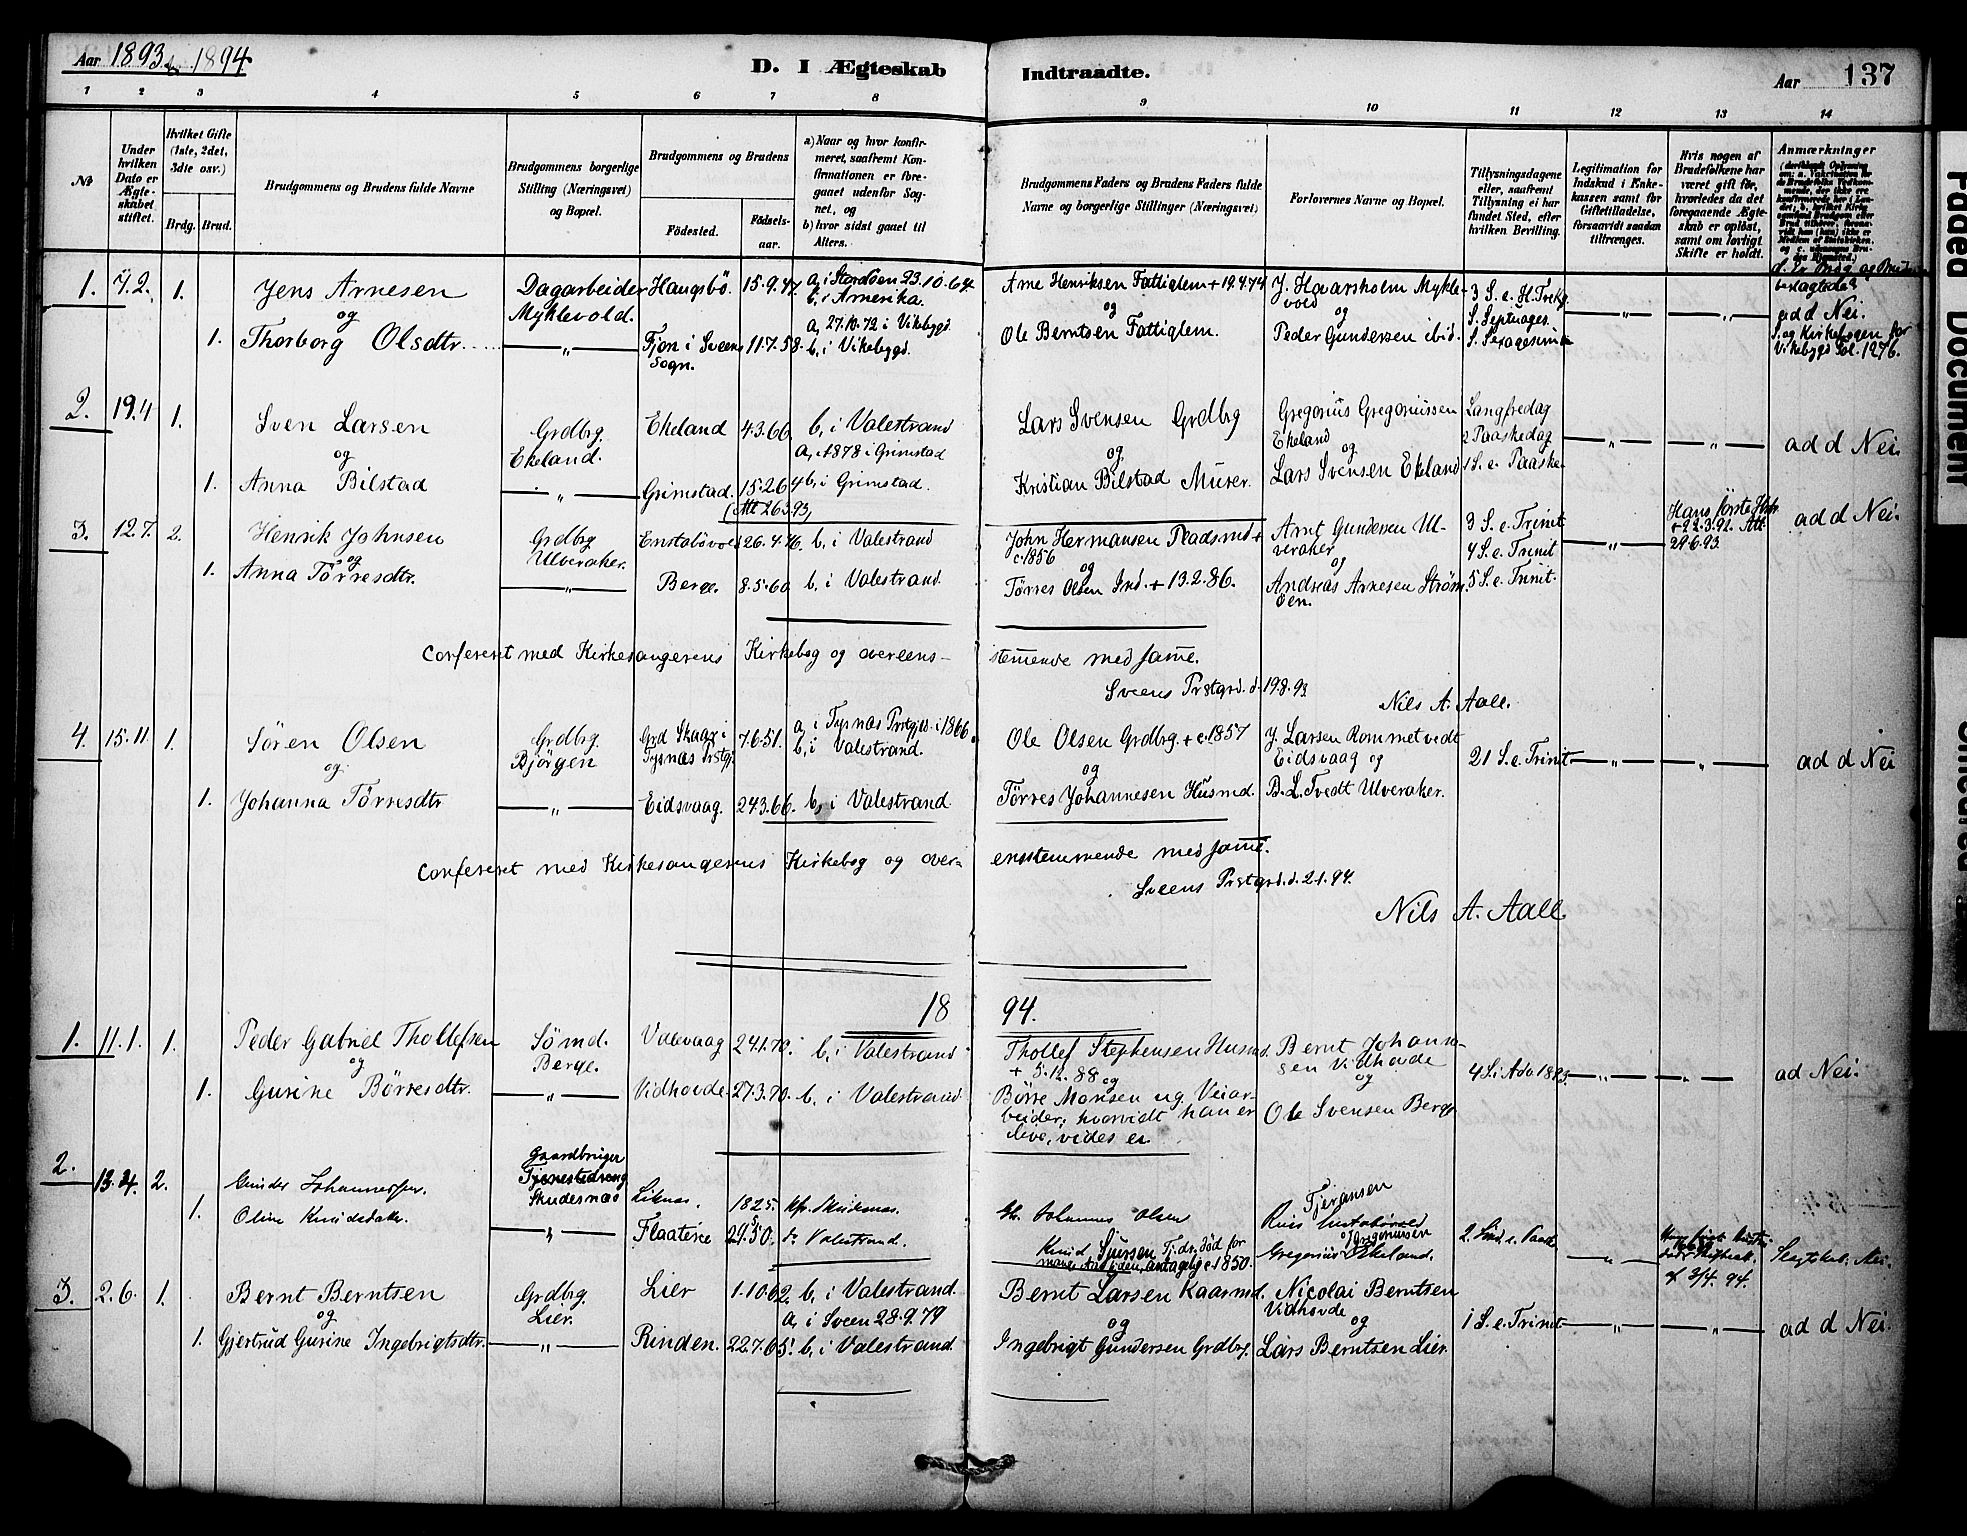 Aar 1893 & 1894
D. I Ægteskab Indtraadte.
Aar 137
1 2 3 4 5 6 7 8 9 10 11 12 13 14
No
Under hvilken Dato er Ægteskabet stiftet.
Hvilket Gifte (1ste, 2det, 3die osv.)
Brdg. Brud.
Brudgommens og Brudens fulde Navne
Brudgommens borgerlige Stilling (Næringsvei) og Bopæl.
Brudgommens og Brudens
Fødested. Fødselsaar.
a) Naar og hvor konfirmeret, saafremt Konfirmationen er foregaaet udenfor Sognet, og
b) hvor sidst gaaet til Alters.
Brudgommens Faders og Brudens Faders fulde Navne og borgerlige Stillinger (Næringsvei)
Forlovernes Navne og Bopæl.
Tillysningsdagene eller, saafremt Tillysning ei har fundet Sted, efter hvilken Bevilling.
Legitimation for Indskud i Enkekassen samt for Giftetilladelse, forsaavidt saadan tiltrænges.
Hvis nogen af Brudefolkene har været gift før, hvorledes da det foregaaende Ægteskab er opløst, samt om lovligt Skifte er holdt.
Anmærkninger
1. 7.2. 1. Jens Arnesen Dagarbeider Myklevold. Haugsbö. 15.9.47 a, i Stordöen 23.10.64. b, i Amerika. Arne Henriksen Fattiglem + 19.4.74 J. Haarsholm Myklevold 3 S. e. H. Trekg. ad d Nei.
og
1. Thorborg Olsdtr. — " — Fjon i Sveens Sogn. 11.7.58. a, 27.10.72 i Vikebygd b, i Vikebygd. Ole Berntsen Fattiglem. Peder Gundersen ibid. S. Septuages. S. Sexagesima S. og Kirkebogen for Vikebygd Fol. 1276.
2. 19.4 1. Sven Larsen Grdbrg. Ekeland. Ekeland 4.3.66. b, i Valestrand Lars Svensen Grdbrg Gregorius Gregoriussen Ekeland Langfredag 2 Paaskedag — " — — " — ad d Nei.
og
1. Anna Bilstad — " — Grimstad. 15.2.64 a, 1878 i Grimstad b, i Grimstad. Kristian Bilstad Murer. Lars Svensen Ekeland 1 S. e. Paaske
(Att 26.3.93)
3. 12.7. 2. Henrik Johnsen Grdbrg Ulveraker. Enstabövold 26.4. b, i Valestrand John Hermansen Pladsmd + c. 1856 Arnt Gundersen Ulveraker 3 S. e. Trinit 4 S. e. Trinit — " — Hans förste + 22.3.92. Att 29.6.93. ad d Nei.
og
1. Anna Törresdtr. — " — Berge. 8.5.60. b, i Valestrand. Törres Olsen Ind. + 13.2.86. Andreas Arnesen Strömöen. 5 S. e. Trinit.
Confereret med Kirkesangerens Kirkebog og overensstemmende med samme.
Sveens Prstgrd. d. 19.8.93
Nils A. Aall.
4. 15.11 1. Sören Olsen Grdbrg. Björgen Grd Skaar i Tysnæs Prstgj. 7.6.51. a, i Tysnæs Prstgjld. i 1866. b, i Valestrand. Ole Olsen Grdbrg. + c. 1857 J. Larsen Rommetvedt Eidsvaag og 21 S. e. Trinit — " — — " — ad d Nei
og
1. Johanna Törresdtr — " — Eidsvaag. 24.3.66. b, i Valestrand. Törres Johannesen Husmd. B. L. Tvedt Ulveraker.
Confereret med Kirkesangerens Kirkebog og overensstemmende med samme.
Sveens Prstgrd. d. 2.1.94.
Nils A. Aall.
1894.
1. 11.1. 1. Peder Gabriel Thollefsen Sömd. Berge. Valevaag 24.1.70. b, i Valestrand Thollef Stephensen Husmd. + 5.12.88 Bernt Johansen Vidhovde 4 S. i Adv. 1893. — " — — " — ad Nei.
og
1. Gurine Börresdtr. — " — Vidhovde. 27.3.70. b, i Valestrand. Börre Monsen ug. Veiarbeider, hvorvidt han er ilive, vides ei Ole Svensen Berge
2. 13.4. 2. Gunder Johannessen. Gaardbruger Skudesnæs Liknæs. 1825. Skudesnæs. Johannes Olsen
1. Oline Knudsdatter. — " — Flaateie 29.5.50. do Valestrand. Knud Sjursen død for mange Aar siden, antagelig c. 1850. Gregorius Gregoriussen Ekeland. 2 Sönd e. Paaske — " — 3/4. 94. Slegtskab. Nei.
3. 2.6. 1. Bernt Berntsen Grdbrg. Lier. Lier 1.10.62. b, i Valestrand. Bernt Larsen Kaarmd. Nicolai Berntsen Vidhovde 1 S. e. Trinit — " — — " — ad d Nei.
og
1. Gjertrud Gurine Ingebrigtsdtr. — " — Rinden. 22.7.65. a, i Sveen 28.9.79 b, i Valestrand. Ingebrigt Gundersen Grdbrg. Lars Berntsen Lier.
Faded Document